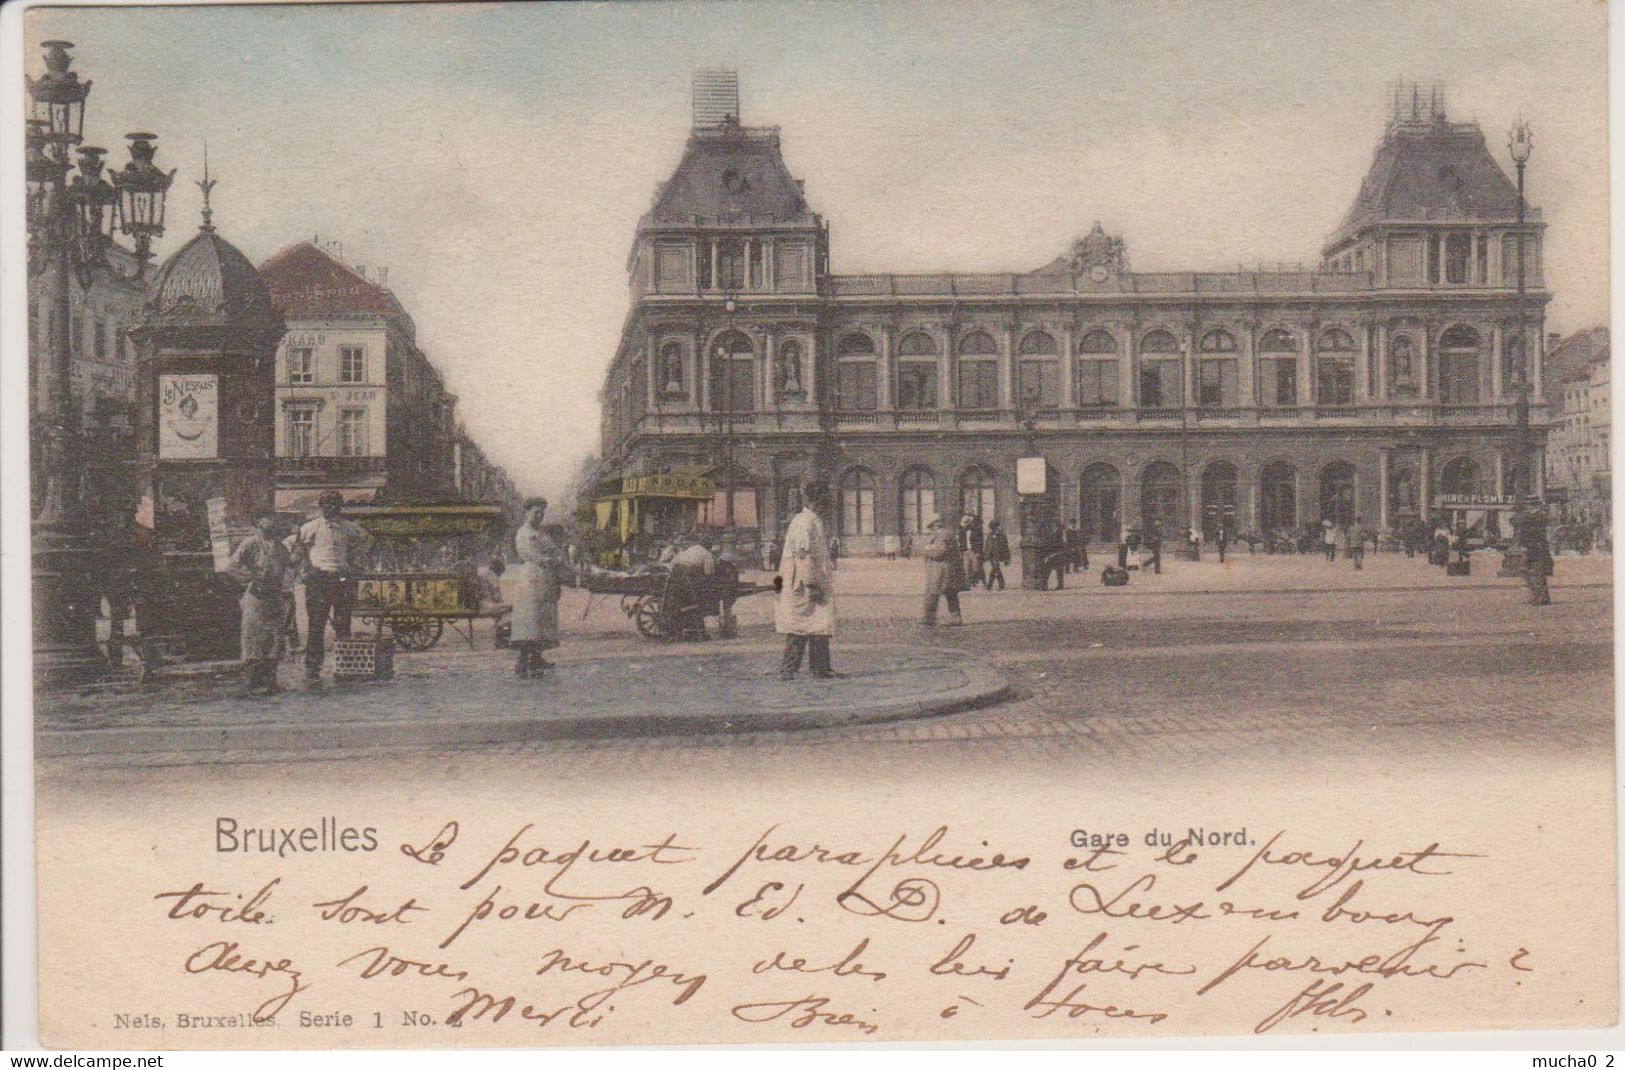 Le Nesrus
GRARD
St JEAN
KODAK
MINE & PLOMB Z
Bruxelles
Gare du Nord.
Le paquet parapluies et le paquet
toile sont pour M. Ed. D. de Luxembourg.
Aurez vous moyen de les lui faire parvenir ?
Merci Bien à tous
Nels, Bruxelles. Serie 1 No. 2
www.delcampe.net
mucha0_2